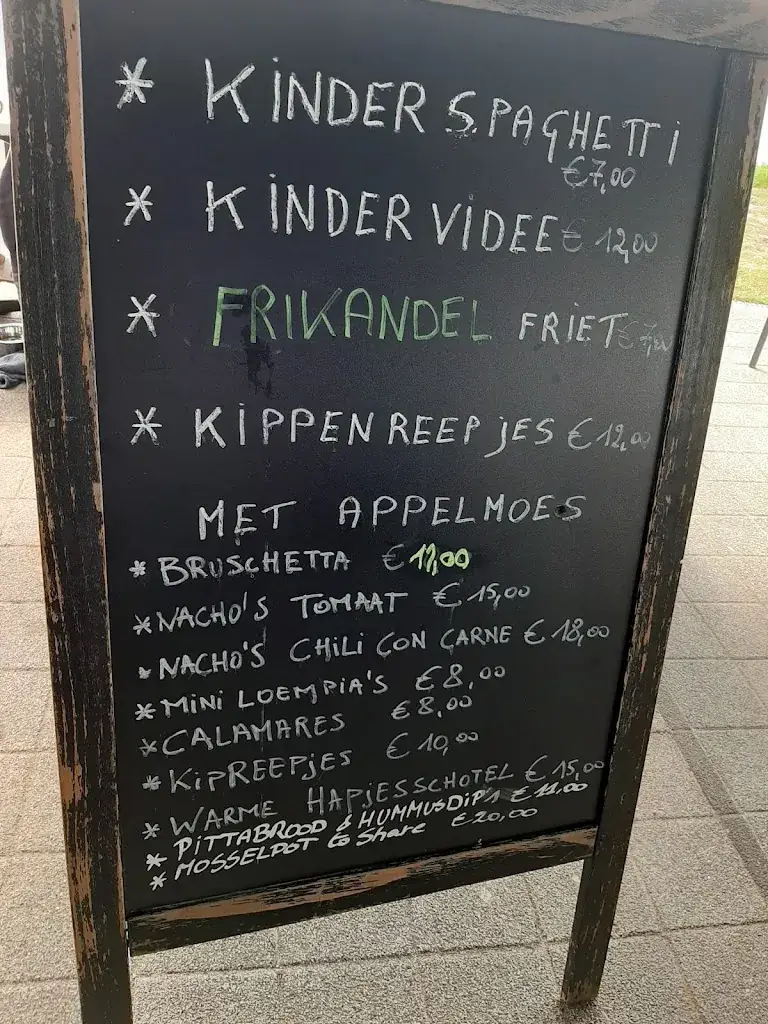 * KINDER SPAGHETTI
€7,00
* KINDER VIDEE € 12,00
* FRIKANDEL FRIET €7,00
* KIPPENREEPJES €12,00
MET APPELMOES
* BRUSCHETTA €12,00
* NACHO'S TOMAAT €15,00
* NACHO'S CHILI CON CARNE €18,00
* MINI LOEMPIA'S €8,00
* CALAMARES €8,00
* KIPREEPJES €10,00
* WARME HAPJESSCHOTEL €15,00
* PITTABROOD & HUMMUSDIP €11.00
* MOSSELPOT to Share €20,00